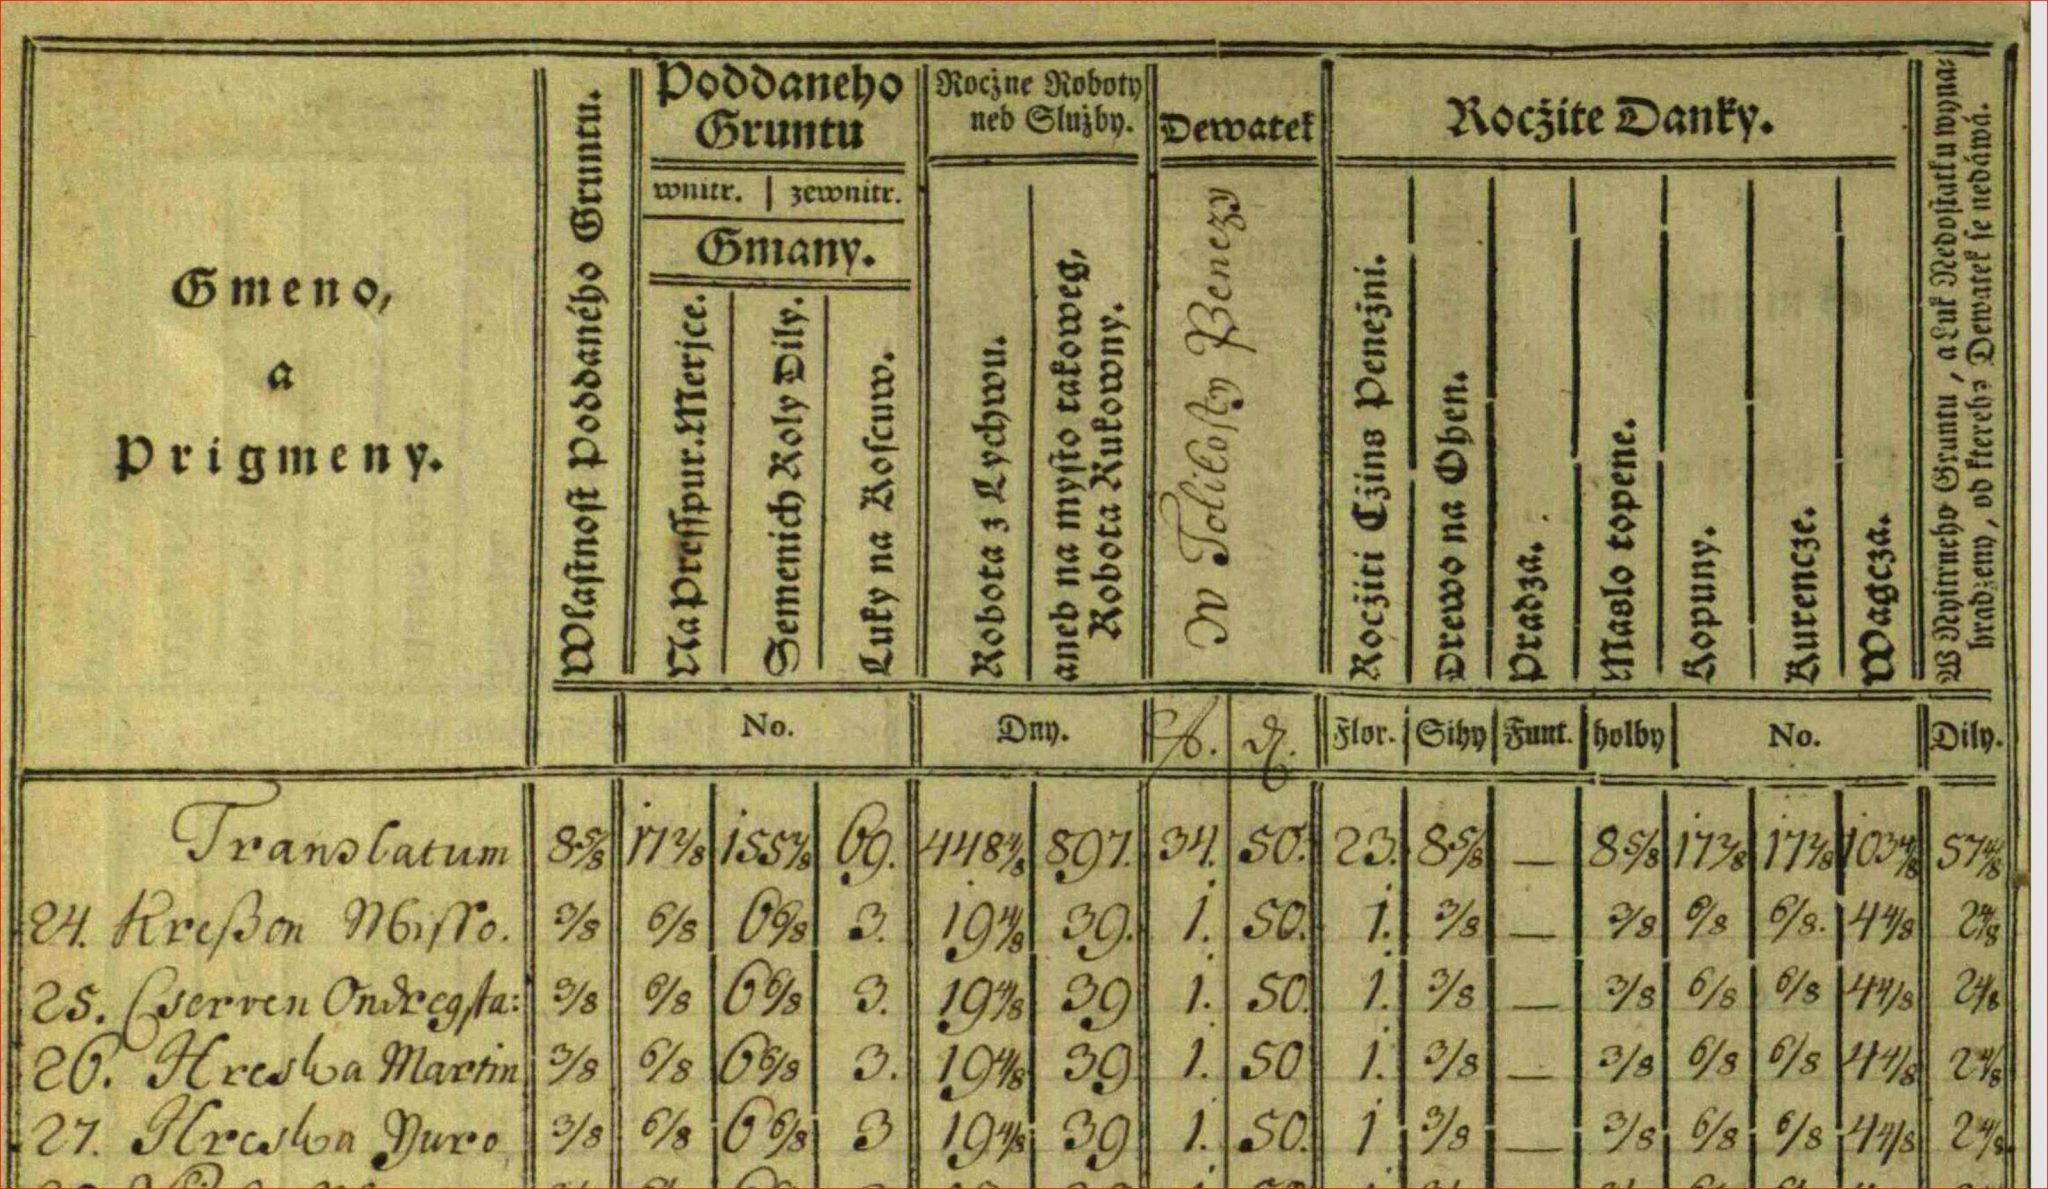 Poddaneho
Gruntu
wnitr. | zewnitr.
Gmany.
Roczne Roboty
neb Služby.
Dewatek
Rocžite Danky.
Gmeno,
a
Prigmeny.
Wlastnost Poddaného Gruntu.
Na Presspur. Merjce.
Semenich Roly Dily.
Luky na Koscuw.
Robota z Lychwu.
aneb na mysto takoweg,
Robota Rukowny.
W Tolikosty Penezy
Rocžiti Cžins Penežni.
Drewo na Ohen.
Pradza.
Maslo topene.
Kopuny.
Kurencze.
Wagcza.
W Nyitrneho Gruntu, a Luk Nedostatku wyna-
hradzeny, od ktereho Dewatek se nedáwá.
No. Dny. fl. d. Flor. Sihy Funt. holby No. Dily.
Translatum 8 5/8 17 2/8 155 2/8 69. 448 4/8 897. 34. 50. 23. 8 5/8 — 8 5/8 17 2/8 17 2/8 103 4/8 57 4/8
24. Kreßan Misso. 3/8 6/8 6 6/8 3. 19 4/8 39. 1. 50. 1. 3/8 — 3/8 6/8 6/8. 4 4/8 2 4/8
25. Cserven Ondreg sta: 3/8 6/8 6 6/8 3. 19 4/8 39 1. 50. 1. 3/8 — 3/8 6/8 6/8 4 4/8 2 4/8
26. Hreska Martin 3/8 6/8 6 6/8 3. 19 4/8 39 1. 50 1. 3/8 — 3/8 6/8 6/8 4 4/8 2 4/8
27. Hreska Yuro 3/8 6/8 6 6/8 3 19 4/8 39 1. 50. 1 3/8 — 3/8 6/8 6/8 4 4/8 2 4/8